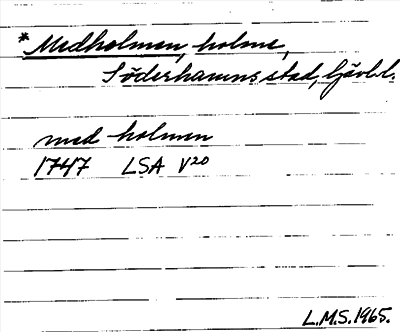 *Medholmen, holme,
Söderhamns stad, Gävl.l.
med holmen
1747 LSA V20
L.M.S. 1965.